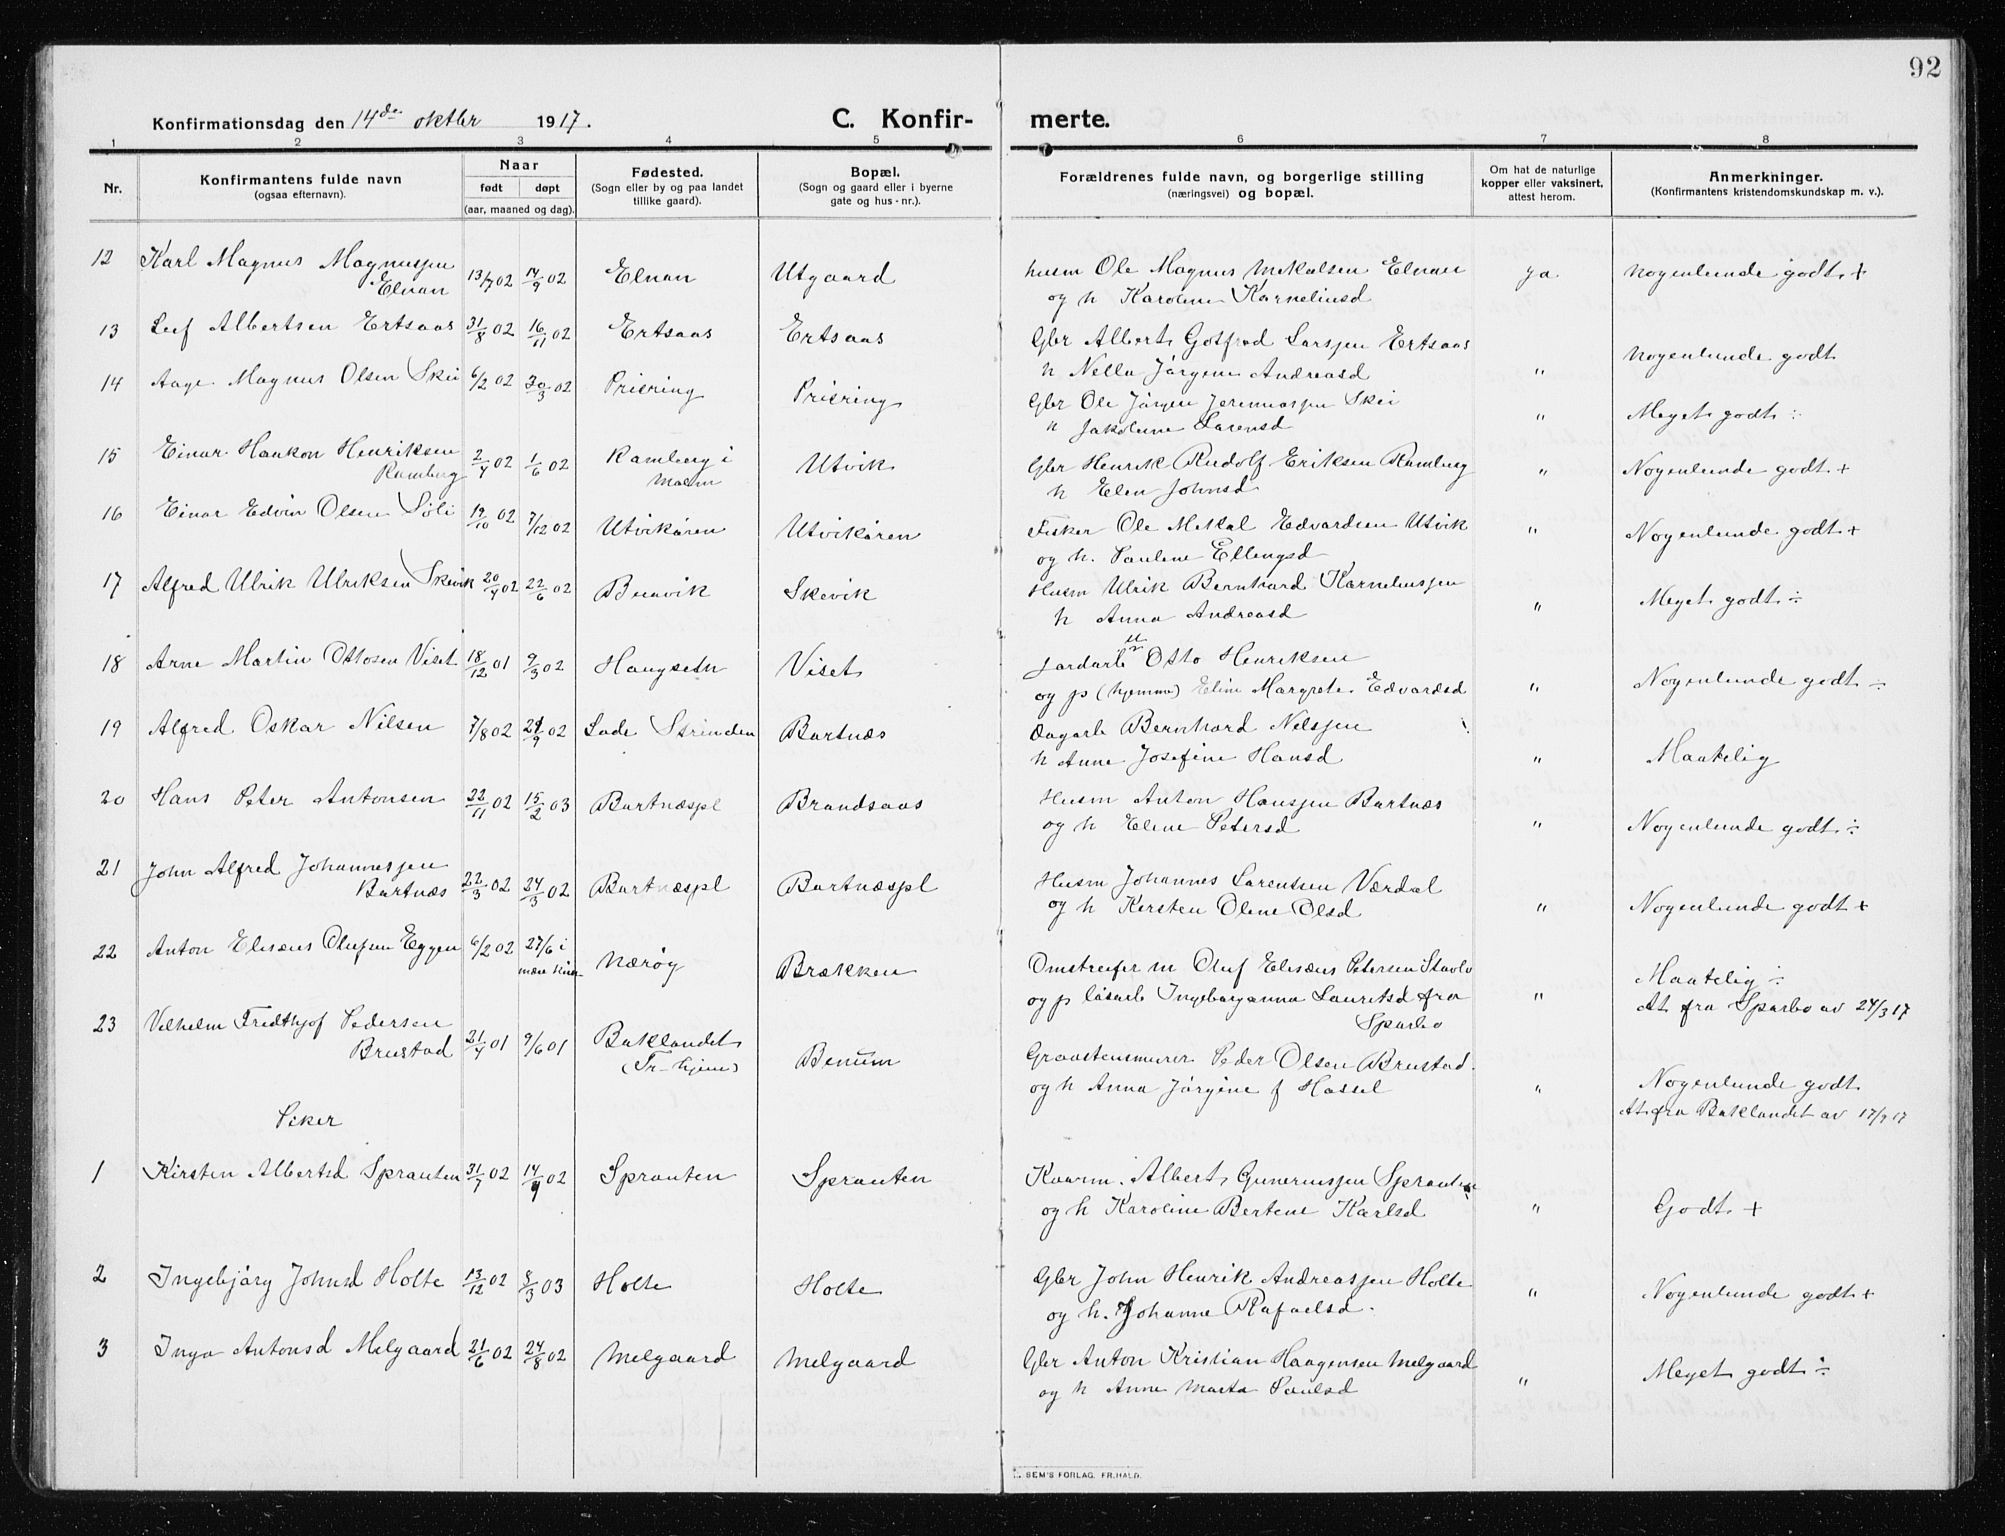 92
Konfirmationsdag den 14de oktbr 1917.
C. Konfir- merte.
1 2 3 4 5 6 7 8
Nr.
Konfirmantens fulde navn
(ogsaa efternavn).
Naar
født døpt
(aar, maaned og dag).
Fødested.
(Sogn eller by og paa landet
tillike gaard).
Bopæl.
(Sogn og gaard eller i byerne
gate og hus-nr.).
Forældrenes fulde navn, og borgerlige stilling
(næringsvei) og bopæl.
Om hat de naturlige
kopper eller vaksinert,
attest herom.
Anmerkninger.
(Konfirmantens kristendomskundskap m. v.).
12 Karl Magnus Magnussen
Elnan 13/7 02 14/9 02 Elnan Utgaard husm Ole Magnus Mikalsen Elnan ja nogenlunde godt +
og h Karoline Korneliusd
13 Leif Albertsen Ertsaas 31/8 02 16/11 02 Ertsaas Ertsaas Gbr Albert Gotfred Larssen Ertsaas
h Nella Jørgine Andreasd " nogenlunde godt
14 Aage Magnus Olsen Skei 6/2 02 30/3 02 Priering Priering Gbr Ole Jørgen Jeremiassen Skei
h Jakobine Larensd " Meget godt ÷
15 Einar Haakon Henriksen
Ramberg 2/4 02 1/6 02 Ramberg i
Malm Utvik Gbr Henrik Rudolf Eriksen Ramberg " Nogenlunde godt +
h Elen Johnsd
16 Einar Edvin Olsen Søli 19/10 02 7/12 02 Utvikøren Utvikøren Fisker Ole Mekal Edvardsen Utvik " Nogenlunde godt +
og h. Pauline Ellingsd
17 Alfred Ulrik Ulriksen Skevik 20/4 02 22/6 02 Buavik Skevik Husm Ulrik Bernhard Karneliussen
h Anna Andreasd " Meget godt ÷
18 Arne Martin Ottosen Viset 18/12 01 9/3 02 Haugsetn Viset Jordarb Otto Henriksen
og p (hjemme) Eline Margrete Edvardsd " Nogenlunde godt ÷
19 Alfred Oskar Nilsen 7/8 02 21/9 02 Lade Strinden Bartnæs Dagarb Bernhard Nilssen
h Anne Josefine Hansd " Maatelig
20 Hans Peter Antonsen 22/11 02 15/2 03 Bartnæspl Brandsaas Husm Anton Hanssen Bartnæs
og h Eline Petersd " Nogenlunde godt ÷
21 John Alfred Johannessen
Bartnæs 22/3 02 24/3 02 Bartnæspl Bartnæspl Husm Johannes Larentsen Værdal
og h Kirsten Oline Olsd " Nogenlunde godt +
22 Anton Eliseus Olufsen Eggen 6/2 02 27/6 i
mære kirke Nærøy Brækken Omstreifer m Oluf Eliseus Petersen Stavlo Maatelig ÷
og p løsarb Ingeborganna Lauritsd fra " At fra Sparbo av 24/3 17
Sparbo
23 Vilhelm Fredthjof Pedersen
Brustad 21/4 01 9/6 01 Baklandet
(Tr-hjem) Benum Graastensmurer Peder Olsen Brustad.
og h Anna Jørgine f Hassel " Nogenlunde godt
At fra Baklandet av 17/9 17
Piker
1 Kirsten Albertsd Sprauten 31/7 02 14/9 02 Sprauten Sprauten Kaarm. Albert Gunerussen Sprauten
og h Karoline Bertine Karlsd " Godt +
2 Ingebjørg Johnsd Holte 13/12 02 8/3 03 Holte Holte Gbr John Henrik Andreassen Holte " Nogenlunde godt +
og h. Johanne Rafaelsd.
3 Inga Antonsd Melgaard 21/6 02 24/8 02 Melgaard Melgaard Gbr Anton Kristian Haagensen Melgaard
og h Anne Marta Paulsd " Meget godt ÷
SEM'S FORLAG, FR.HALD.